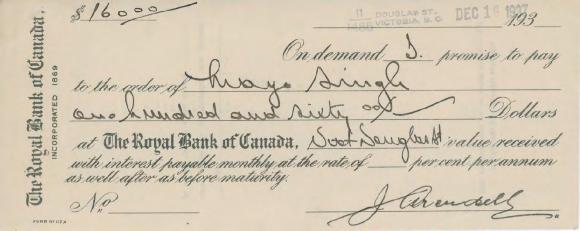 $160 00
DOUGLAS ST.
VICTORIA, B.C. DEC 16 1937
193
On demand I promise to pay
to the order of Mayo Singh
one hundred and sixty Dollars
at The Royal Bank of Canada, Douglas St value received
with interest payable monthly at the rate of per cent per annum
as well after as before maturity.
No
The Royal Bank of Canada.
INCORPORATED 1869